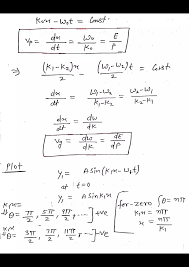 K₀x - ω₀t = Const.
Vp = dx/dt = ω₀/K₀ = E/P
⇒ (K₁-K₂)x/2 - (ω₁-ω₂)t/2 = Const
dx/dt = (ω₁-ω₂)/(K₁-K₂) = (ω₂-ω₁)/(K₂-K₁)
dx/dt = dω/dK
Vg = dω/dK = dE/dP
Plot
y₁ = A Sin(K₁x - ω₁t)
at t=0
y₁ = A Sin K₁x
K₁x=
θ = π/2, 5π/2, 9π/2, ...] +ve
K₁x
θ = 3π/2, 7π/2, 11π/2, ...] -ve
for-zero θ = nπ
K₁x = nπ
x = nπ/K₁